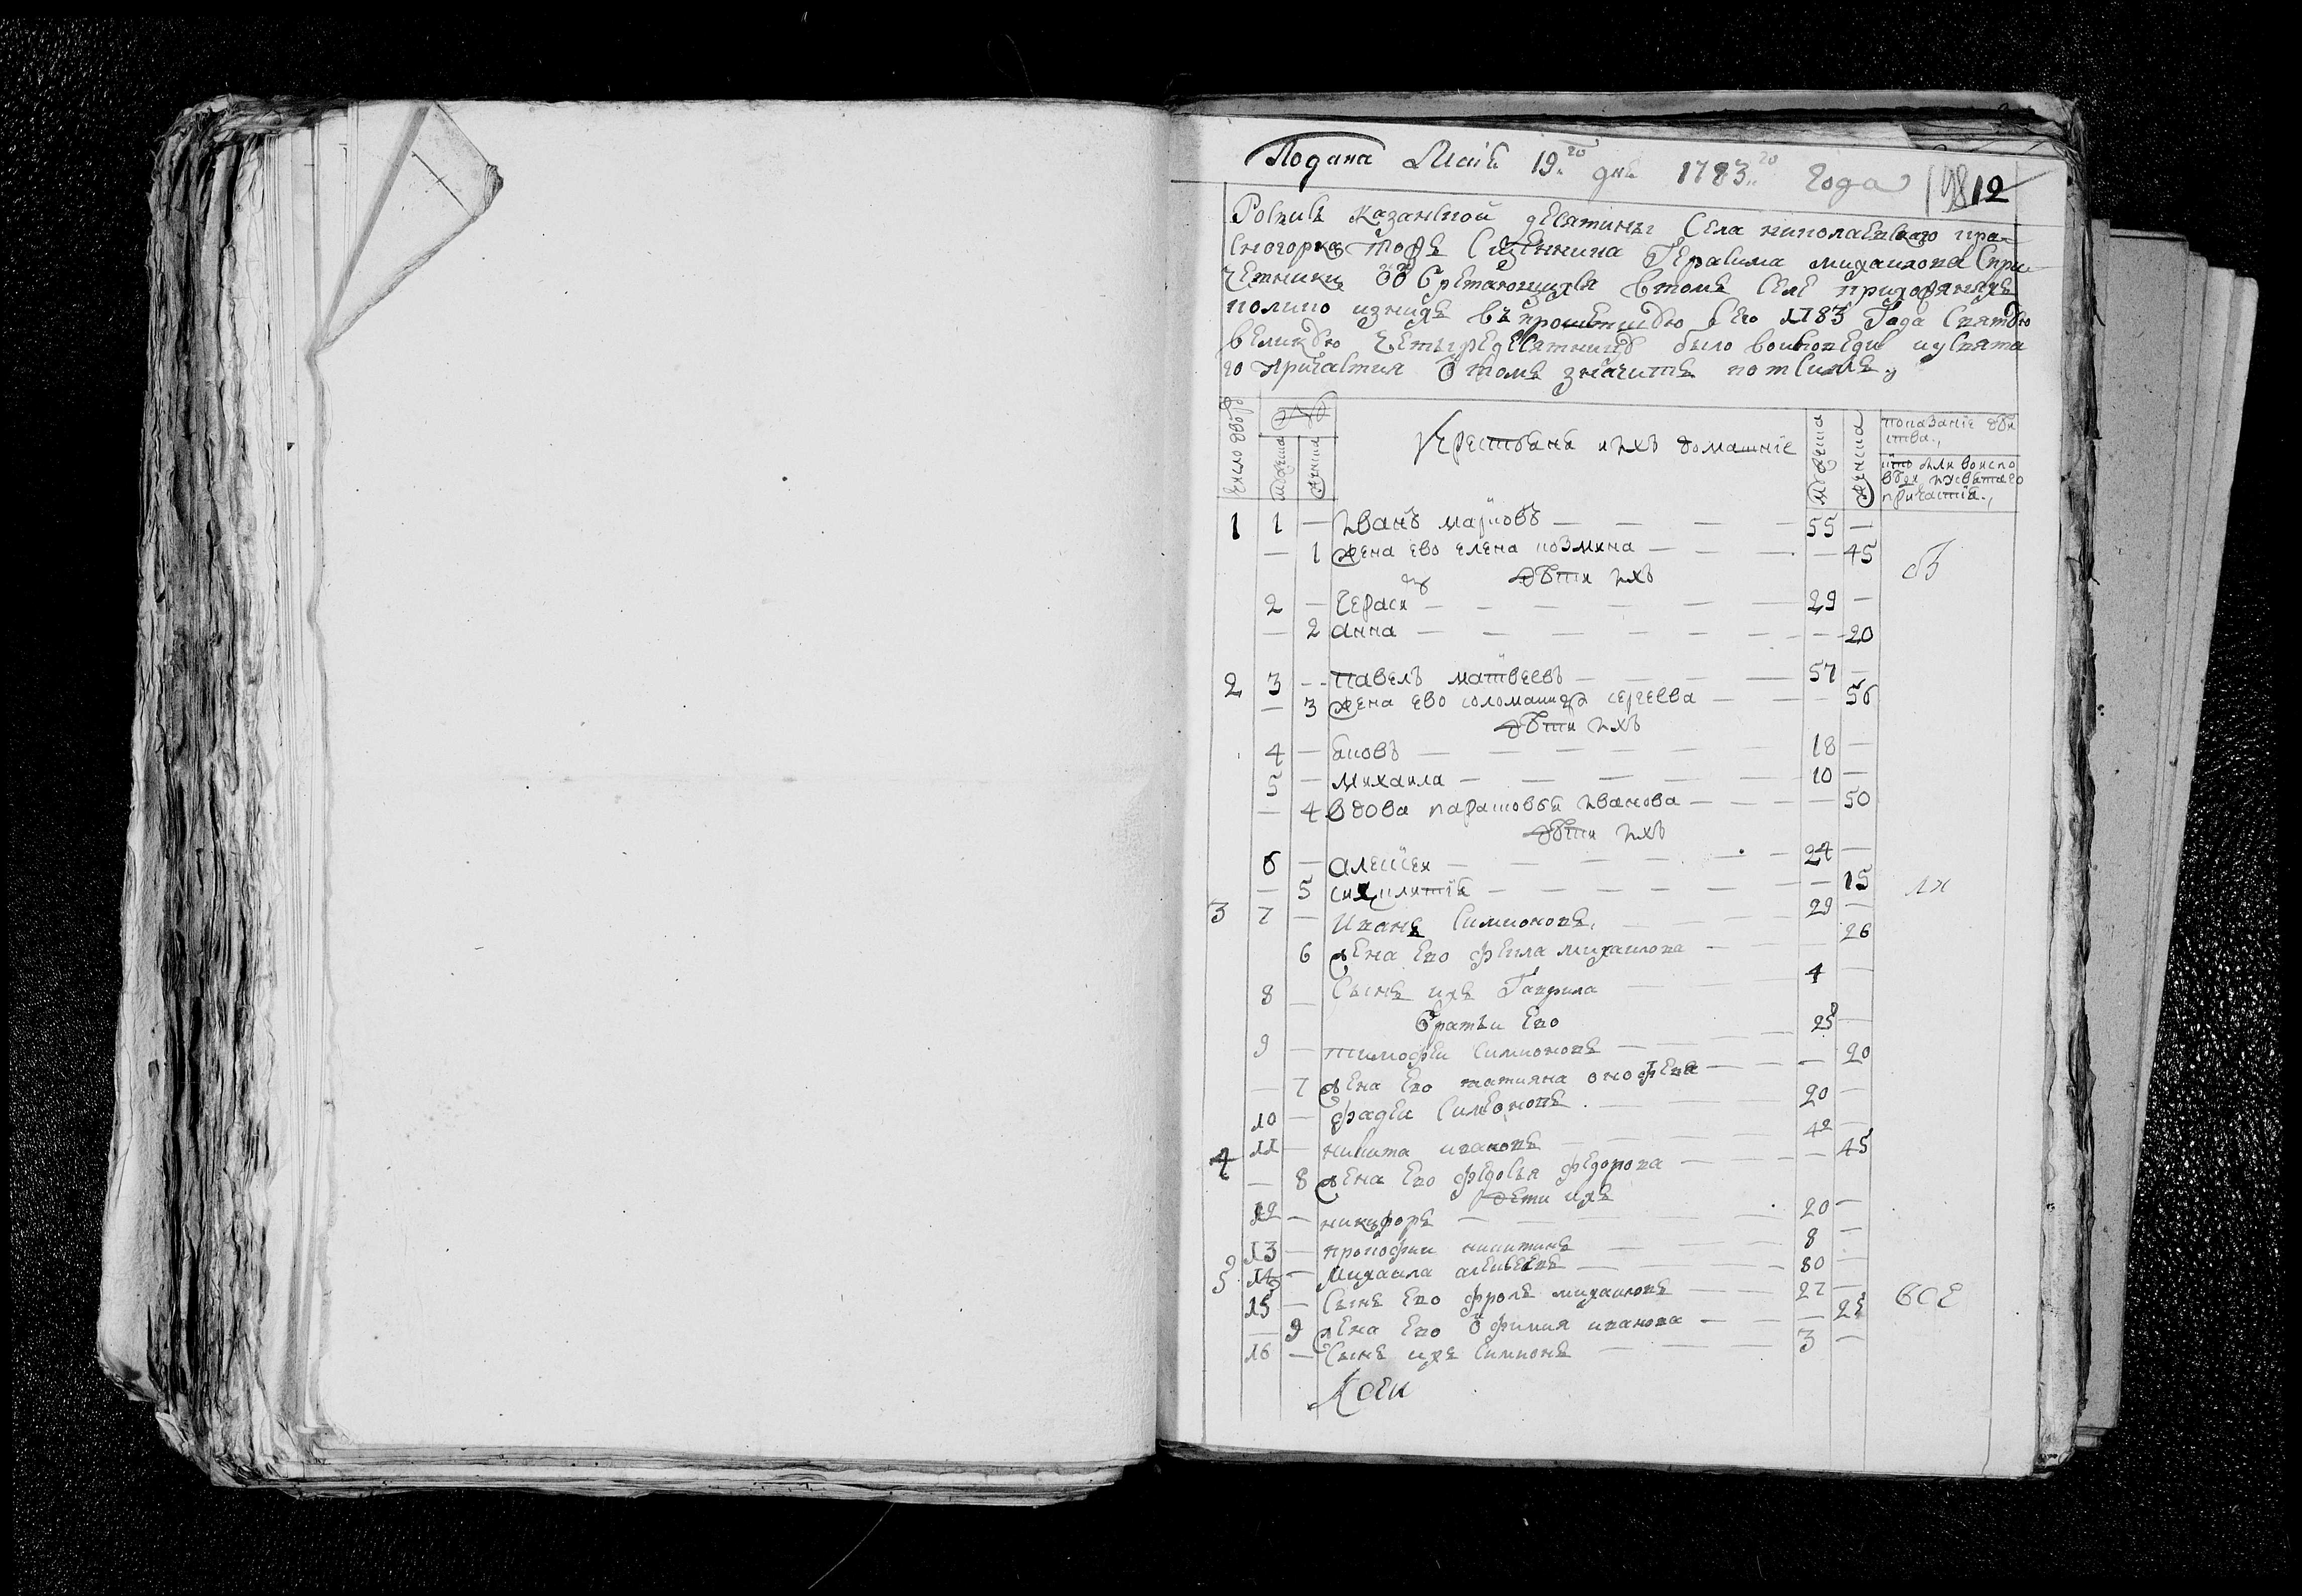 Подана Маiя 19го дня 1783го Года
12
Роспись Казанской десятины Села николаевского кра
сногорка тожъ Сщенника Герасима михаилова Спри
четники Обретающихся втомъ Селе приходжихъ
колико изнихъ въ прошетшую Сего 1783 Года Святую
великую четыредесятницу было воисповеди иусвята
го причастия о томъ значитъ потсимъ
число дворо
мужеска женска
крестьяне ихъ домашнiе
мужеска
женска
показанiе бы
тства
кто были воиспо
веди ихсвятаго
причастiя
1 1 — Иванъ марковъ — 55 —
— 1 жена ево елена козмина — 45
дѣти ихъ
2 — Гераси — 29 —
— 2 анна — 20
2 3 — павелъ матвеевъ — 57 —
— 3 жена ево соломанида сергеева — 56
дѣти ихъ
4 — яковъ — 18 —
5 — михаила — 10 —
— 4 вдова парасковья иванова — 50
дѣти ихъ
6 — алексеи — 24 —
— 5 — 15
3 7 — Иванъ Симионовъ — 29 —
6 жена Ево фекла михаилова — 26
8 — Сынъ ихъ Гаврила — 4 —
братьи Ево
9 — тимофеи Симионовъ — 25 —
— 7 жена Ево татияна онофрева — 20
10 — фадеи Симионовъ — 20 —
4 11 — никита ивановъ — 42 —
— 8 жена Ево федосья федорова — 45
дети ихъ
12 — никифоръ — 20 —
13 — прокофии никитинъ — 8 —
5 14 — Михаила алексеевъ — 80 —
15 — Сынъ Ево фролъ михаиловъ — 27 —
— 9 жена Ево Офимия иванова — 25
16 — Сынъ ихъ Симионъ — 3 —
бы
ли
все